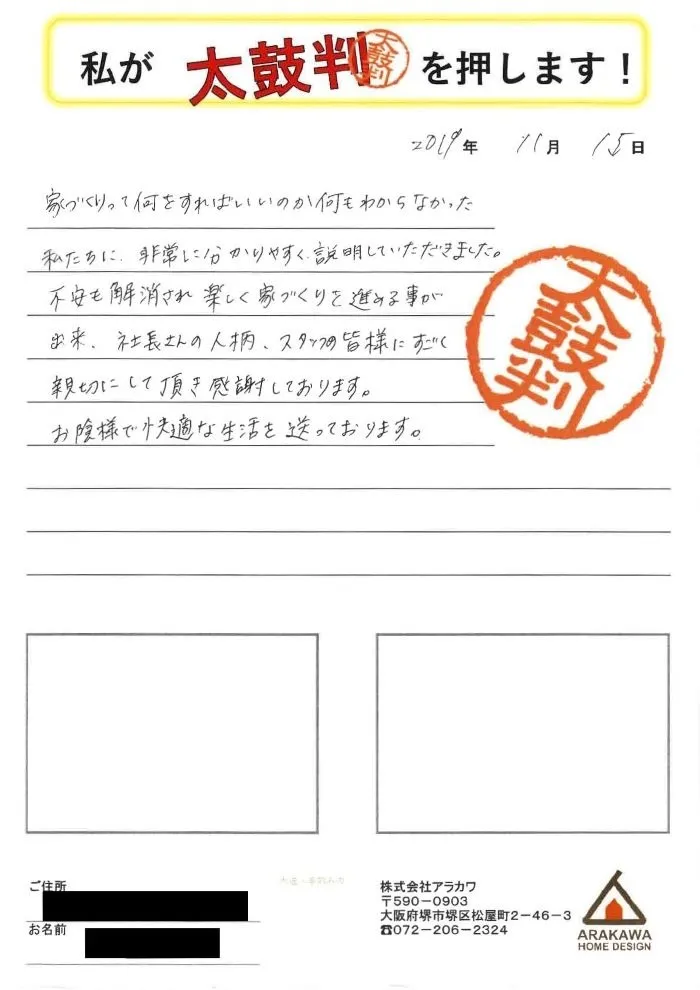 私が 太鼓判 太鼓判 を押します!
2019年 11月 15日
家づくりって何をすればいいのか何もわからなかった
私たちに、非常に分かりやすく説明していただきました。
不安も解消され楽しく家づくりを進める事が
出来、社長さんの人柄、スタッフの皆様にすごく
親切にして頂き感謝しております。
お陰様で快適な生活を送っております。
太鼓判
ご住所
お名前
株式会社アラカワ
〒590-0903
大阪府堺市堺区松屋町2-46-3
☎072-206-2324
ARAKAWA
HOME DESIGN